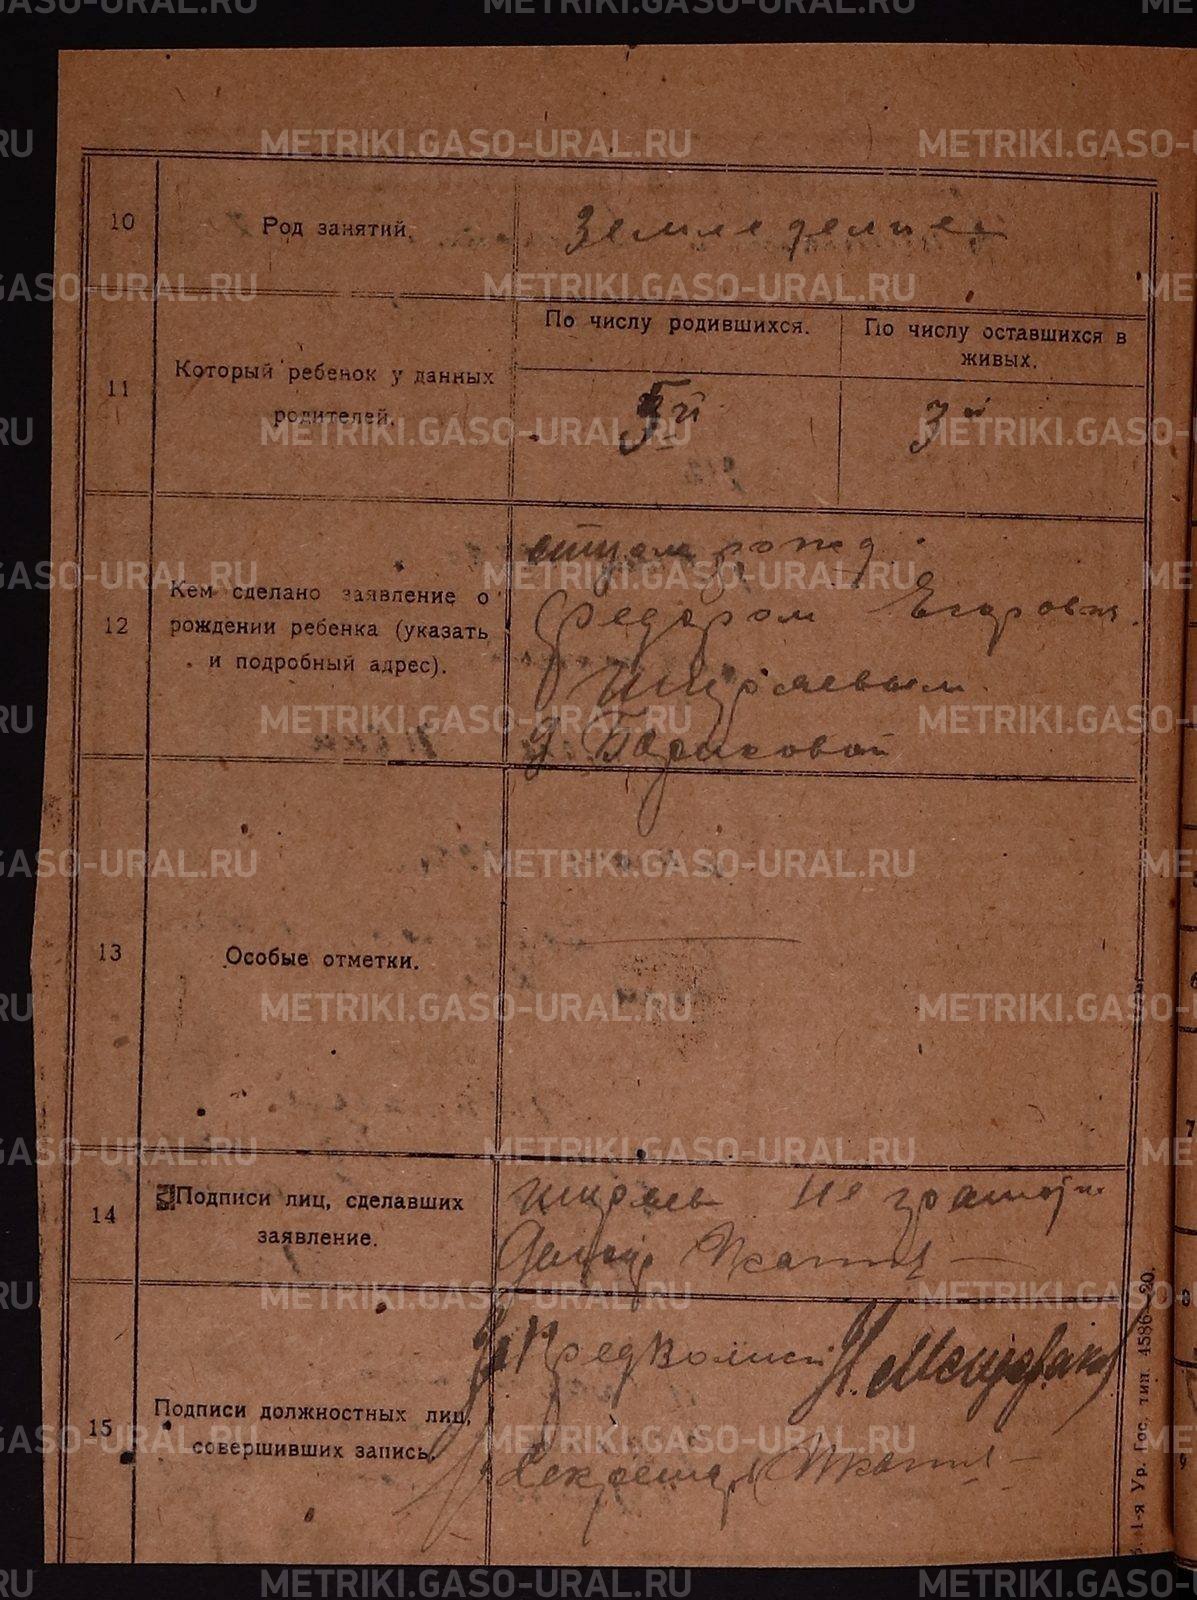 METRIKI.GASO-URAL.RU
10
Род занятий.
Земледелие
11
Который ребенок у данных
родителей.
По числу родившихся.
По числу оставшихся в
живых.
5й
3й
12
Кем сделано заявление о
рождении ребенка (указать
и подробный адрес).
отцем рожд.
Федором Егорович.
Ширяевым
д.
13
Особые отметки.
14
Подписи лиц, сделавших
заявление.
Ширяев не грамотн.
15
Подписи должностных лиц,
совершивших запись.
За Предволисп
Секретарь
1-я Ур. Гос. тип. 4586—20.